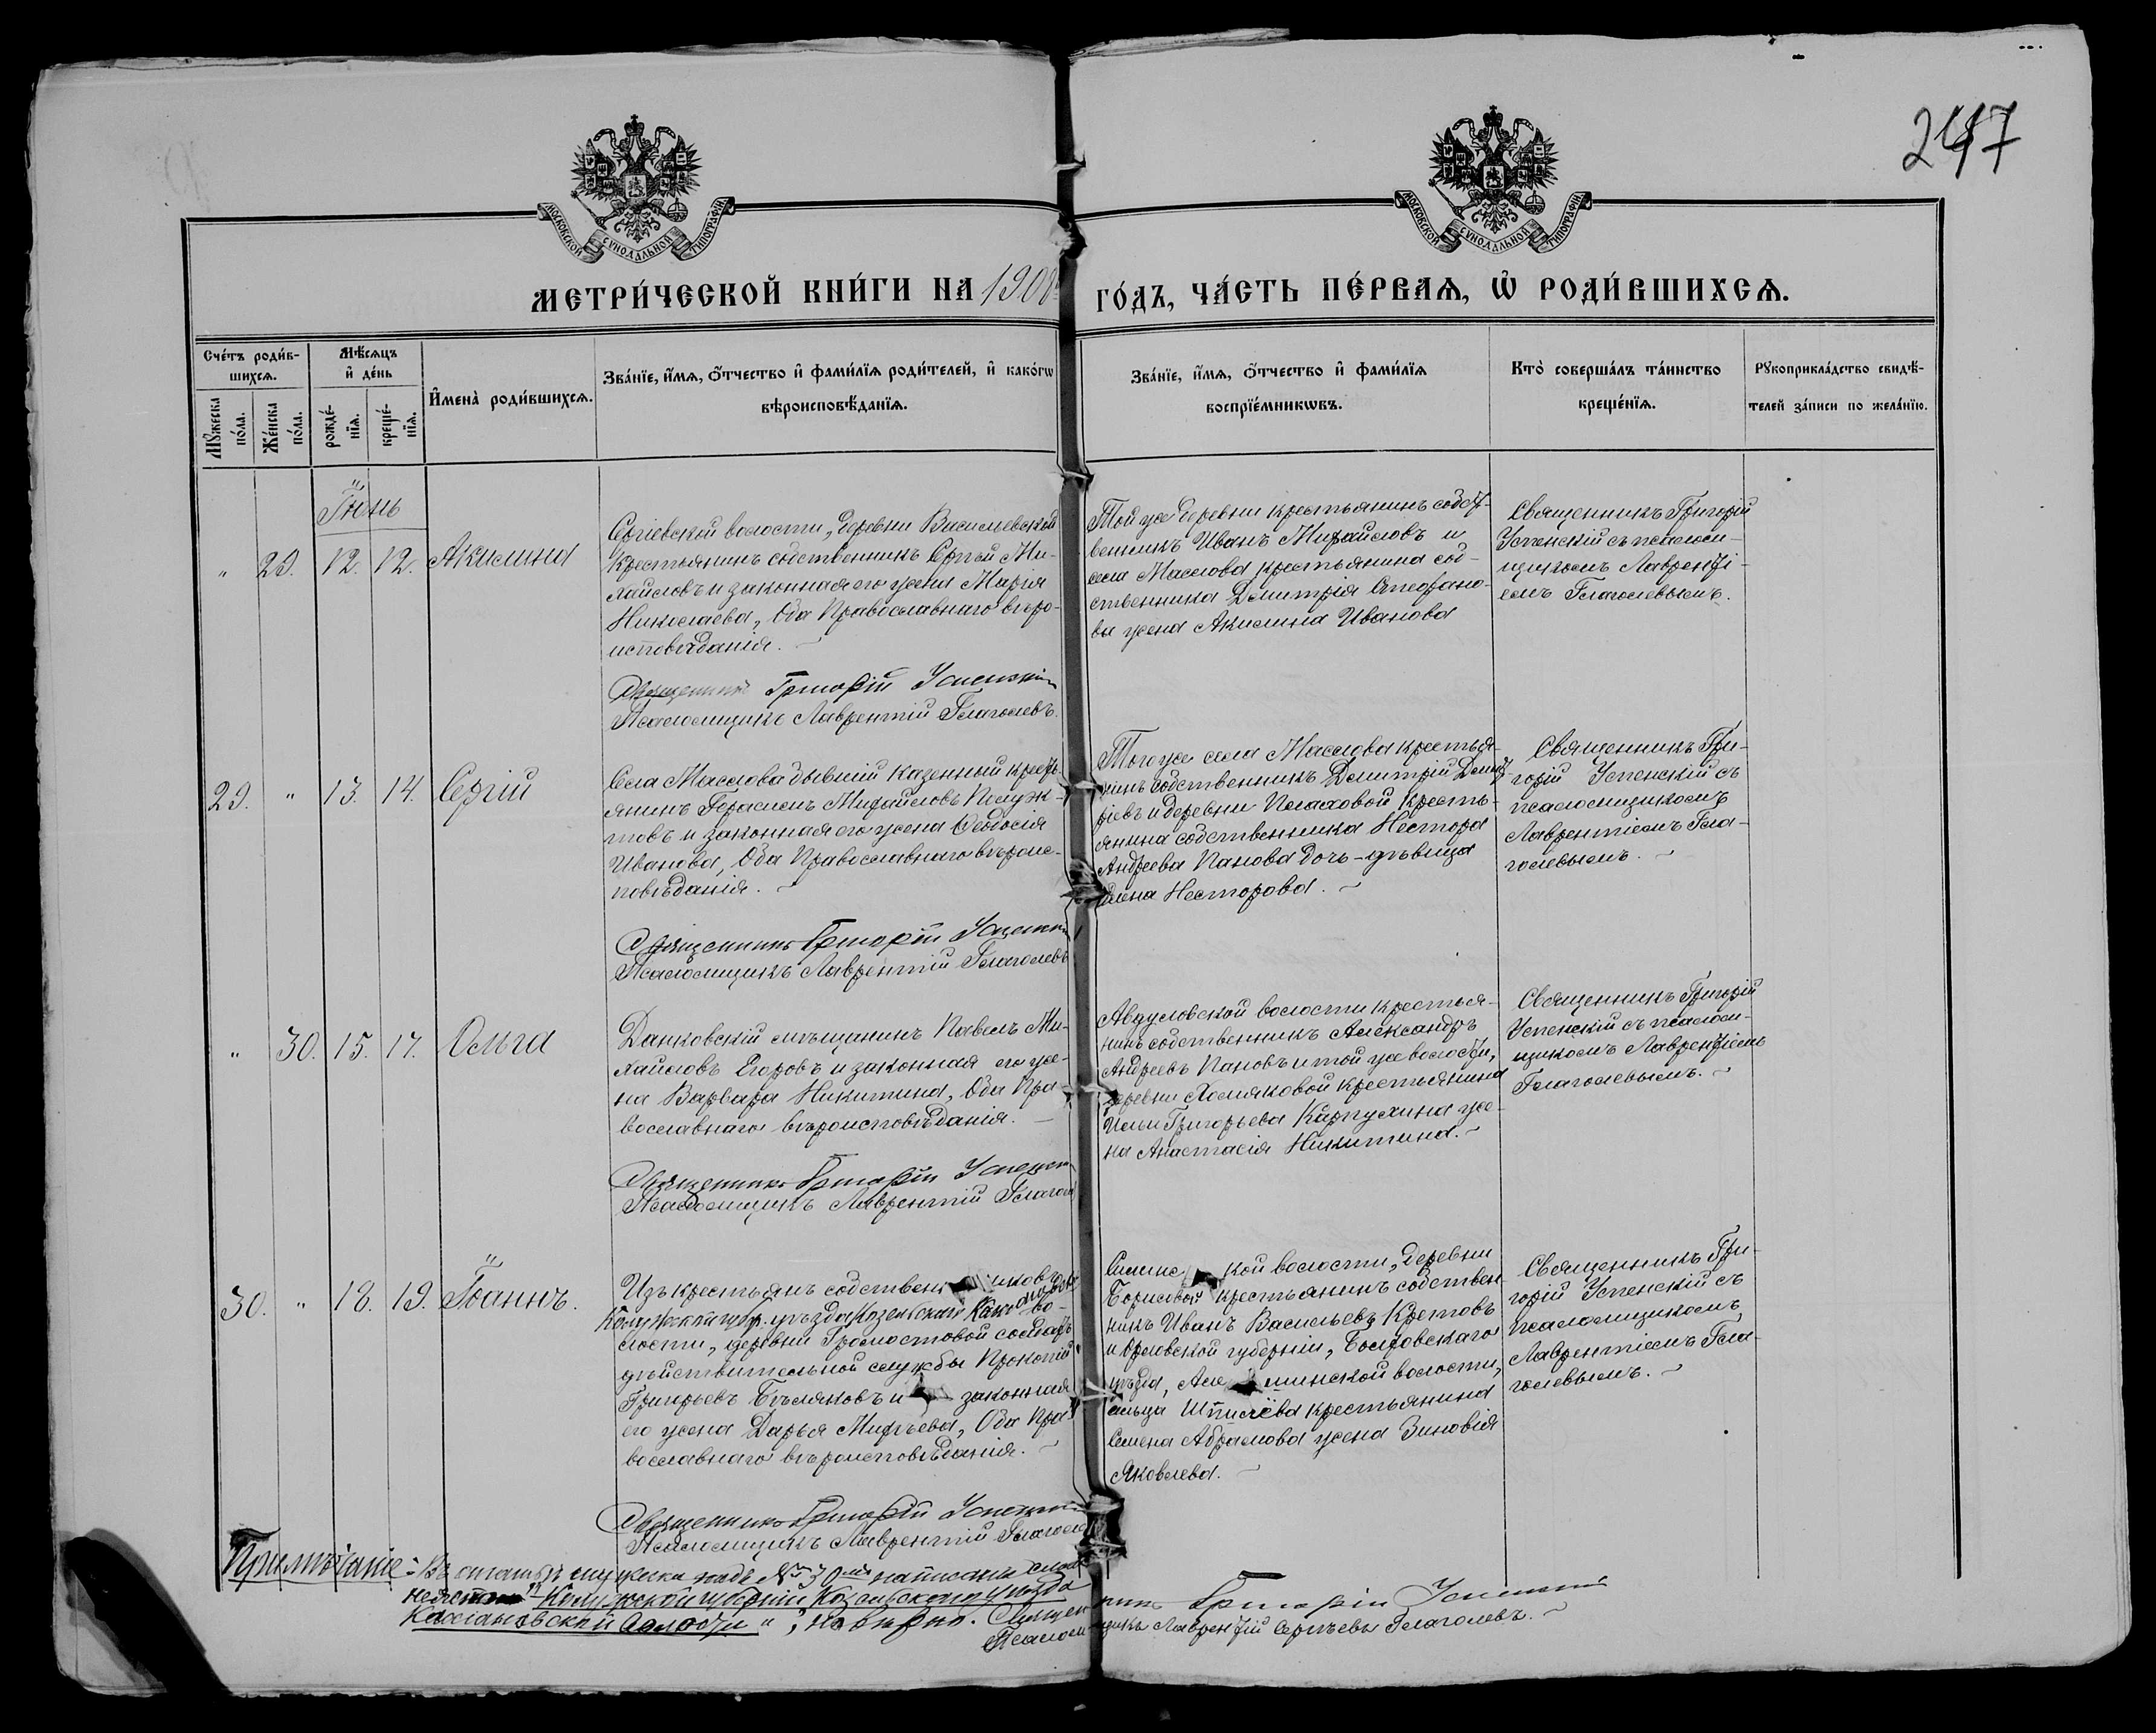 247
МОСКОВСКОЙ СѴНОДАЛЬНОЙ ТИПОГРАФІИ
МОСКОВСКОЙ СѴНОДАЛЬНОЙ ТИПОГРАФІИ
МЕТРИ́ЧЕСКОЙ КНИ́ГИ НА 1908й ГО́ДЪ, ЧА́СТЬ ПЕ́РВАѦ, Ѡ РОДИ́ВШИХСѦ.
Сче́тъ роди́в-
шихсѧ.
Мꙋ́жеска
по́ла.
Же́нска
по́ла.
Мѣ́сѧцъ
и҆ де́нь
рожде́-
нїѧ.
креще́-
нїѧ.
И҆мена̀ роди́вшихсѧ.
Зва́нїе, и҆́мѧ, ѻ҆́тчество и҆ фами́лїѧ роди́телей, и҆ како́гѡ
вѣроисповѣ́данїѧ.
Зва́нїе, и҆́мѧ, ѻ҆́тчество и҆ фами́лїѧ
воспрїе́мникѡвъ.
Кто̀ соверша́лъ та́инство
креще́нїѧ.
Рꙋкоприкла́дство свидѣ́-
телей за́писи по жела́нїю.
Іюнь
" 29. 12. 12. Акилина
Сергіевской волости, деревни Васильевской
крестьянинъ собственникъ Сергѣй Ми-
хайловъ и законная его жена Марія
Николаева, Оба Православнаго вѣро-
исповѣданія.
Священникъ Григорій Успенскій
Псаломщикъ Лаврентій Глаголевъ.
Той же деревни крестьянинъ собст-
венникъ Иванъ Михайловъ и
села Маслова крестьянина соб-
ственника Димитрія Стефано-
ва жена Акилина Иванова
Священникъ Григорій
Успенскій съ псалом-
щикомъ Лаврентіе-
емъ Глаголевымъ.
29. " 13. 14. Сергій
Села Маслова бывшій казенный кресть-
янинъ Герасимъ Михайловъ
и законная его жена Ѳеодосія
Иванова, Оба Православнаго вѣроис-
повѣданія.
Священникъ Григорій Успенскій
Псаломщикъ Лаврентій Глаголевъ
Того же села Маслова крестья-
нинъ собственникъ Димитрій Димит-
ріевъ и деревни крестья-
янина собственника Нестора
Андреева Панова дочь-дѣвица
Елена Несторова.
Священникъ Гри-
горій Успенскій съ
псаломщикомъ
Лаврентіемъ Гла-
голевымъ.
" 30. 15. 17. Ольга
Данковскій мѣщанинъ Павелъ Ми-
хайловъ Егоровъ и законная его же-
на Варвара Никитина, Оба Пра-
вославнаго вѣроисповѣданія.
Священникъ Григорій Успенскій
Псаломщикъ Лаврентій Глаголевъ
Авдуловской волости крестья-
нинъ собственникъ Александръ
Андреевъ Пановъ и той же волости,
деревни Хомяковой крестьянина
Ильи Григорьева Карпухина же-
на Анастасія Никитина.
Священникъ Григорій
Успенскій съ псалом-
щикомъ Лаврентіемъ
Глаголевымъ.
30. " 18. 19. Іоаннъ.
Изъ крестьянъ собственниковъ
Калужской губ. уѣзда Козельскаго во-
лости, деревни солдатъ
дѣйствительной службы Прокопій
Григорьевъ Бѣляковъ и законная
его жена Дарья Михѣева, Оба Пра-
вославнаго вѣроисповѣданія.
Священникъ Григорій Успенскій
Псаломщикъ Лаврентій Глаголевъ
кой волости, деревни
Борисовой крестьянинъ собствен-
никъ Иванъ Васильевъ Кретовъ
и Орловской губерніи, Болховскаго
уѣзда, минской волости,
сельца крестьянина
Семена Абрамова жена Зиновія
Яковлева.
Священникъ Гри-
горій Успенскій съ
псаломщикомъ
Лаврентіемъ Гла-
голевымъ.
Примѣчаніе: Въ статьѣ мужеска подъ № 30мъ написаны слова
"Калужской губерніи Козельскаго уѣзда
волости", вѣрно. Священникъ Григорій Успенскій
Псаломщикъ Лаврентій Сергѣевъ Глаголевъ.